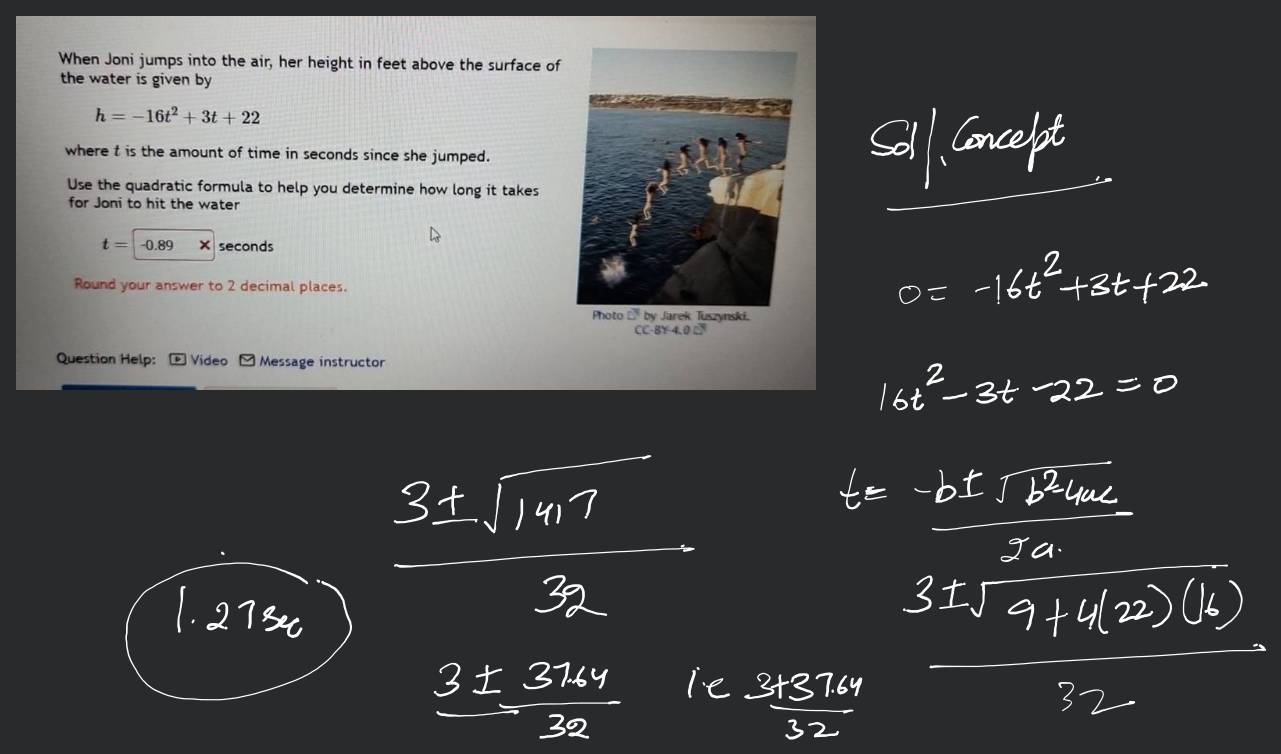 When Joni jumps into the air, her height in feet above the surface of
the water is given by
h = −16t² + 3t + 22
where t is the amount of time in seconds since she jumped.
Use the quadratic formula to help you determine how long it takes
for Joni to hit the water
t = -0.89 × seconds
Round your answer to 2 decimal places.
Photo by Jarek Tuszynski.
CC-BY-4.0
Question Help: Video Message instructor
Sol/. Concept
0 = -16t²+3t+22
16t² - 3t - 22 = 0
t = -b ± √b²-4ac
2a.
3 ± √9+4(22)(16)
32
3 ± √1417
32
3 ± 37.64
32
i.e 3+37.64
32
1.27 sec